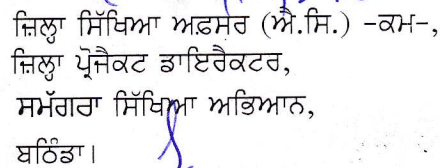 ਜ਼ਿਲ੍ਹਾ ਸਿੱਖਿਆ ਅਫ਼ਸਰ (ਐ.ਸਿ.) -ਕਮ-,
ਜ਼ਿਲ੍ਹਾ ਪ੍ਰੋਜੈਕਟ ਡਾਇਰੈਕਟਰ,
ਸਮੱਗਰਾ ਸਿੱਖਿਆ ਅਭਿਆਨ,
ਬਠਿੰਡਾ।